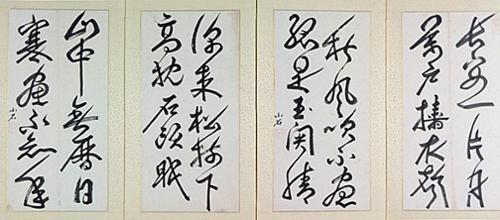 長安一片月
萬戶擣衣聲
秋風吹不盡
總是玉関情
小石
偶来松樹下
高枕石頭眠
山中無曆日
寒盡不知年
小石